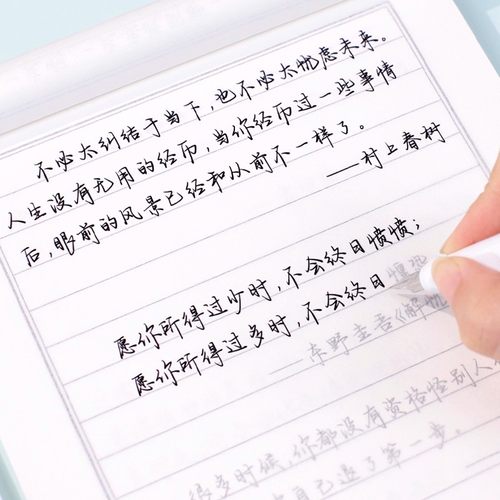 不必太纠结于当下，也不必太忧虑未来。
人生没有无用的经历，当你经历过一些事情
后，眼前的风景已经和从前不一样了。
——村上春树
愿你所得过少时，不会终日愤愤；
愿你所得过多时，不会终日惶恐
——东野圭吾《解忧
很多时候，你都没有资格怪别人
自己退了第一步。